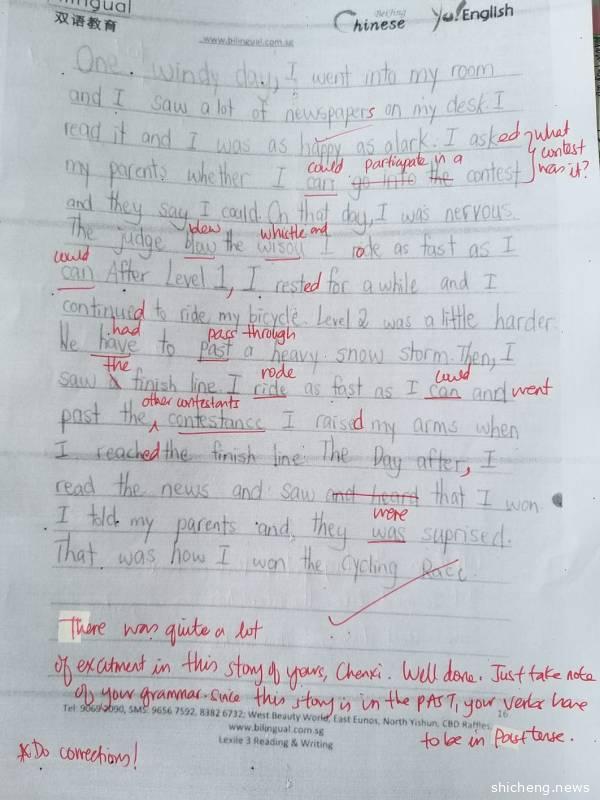 lingual
双语教育
NaCting
Chinese Yo! English
www.bilingual.com.sg
One windy day, I went into my room
and I saw a lot of newspapers on my desk. I
read it and I was as happy as a lark. I asked what
contest
was it?
could participate in a
my parents whether I can go into the contest
and they say I could. On that day, I was nervous.
blew whistle and
The judge blaw the wisou I rode as fast as I
could
can After Level 1, I rested for a while and I
continued to ride my bicycle. Level 2 was a little harder.
had pass through
We have to past a heavy snow storm. Then, I
the rode could
saw finish line. I ride as fast as I can and went
other contestants
past the contestance I raised my arms when
I reached the finish line. The Day after, I
read the news and saw and heard that I won.
were
I told my parents and they was suprised.
That was how I won the Cycling Race.
There was quite a lot
of excitment in this story of yours, Chenxi. Well done. Just take note
of your grammar. Since this story is in the PAST, your verbs have
to be in Past tense.
16
Tel: 9069 2090, SMS: 9656 7592, 8382 6732; West Beauty World, East Eunos, North Yishun, CBD Raffles
www.bilingual.com.sg
Lexile 3 Reading & Writing
*Do corrections!
shicheng.news